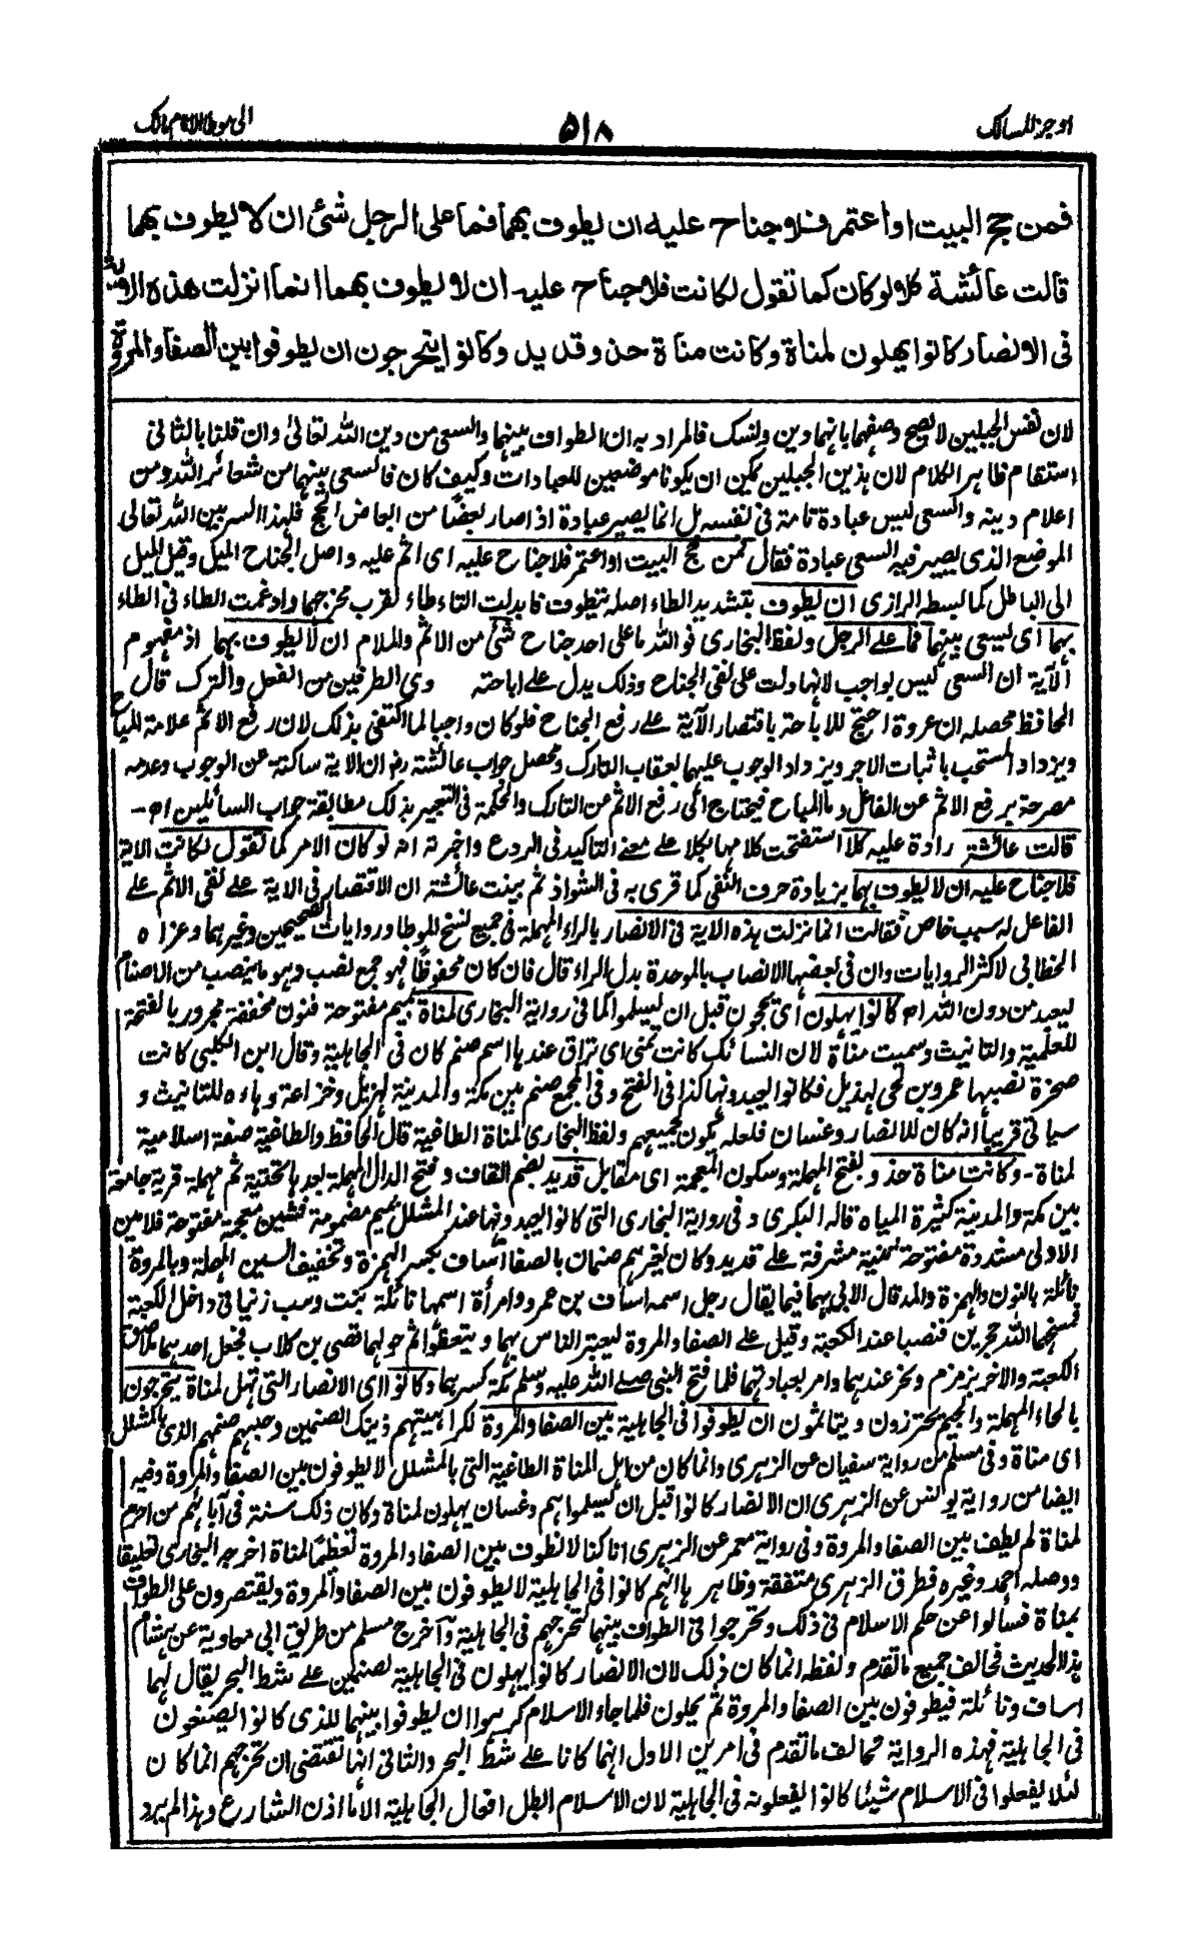 اوجز المسالك
٥١٨
الى موطا الامام مالك
فمن حج البيت او اعتمر فلا جناح عليه ان يطوف بهما فما على الرجل شئ ان لا يطوف بهما
قالت عائشة كلا لو كان كما تقول لكانت فلا جناح عليه ان لا يطوف بهما انما انزلت هذه الاية
فى الانصار كانوا يهلون لمناة وكانت مناة حذو قديد وكانوا يتحرجون ان يطوفوا بين الصفا والمروة
لان نفس الجبلين لا يصح وصفهما بانهما دين ونسك فالمراد به ان الطواف بينهما والسعى من دين الله تعالىٰ وان قلنا بالثانى
استقام ظاهر الكلام لان هذين الجبلين يمكن ان يكونا موضعين للعبادات وكيف كان فالسعى بينهما من شعائر الله ومن
اعلام دينه والسعى ليس عبادة تامة فى نفسه بل انما يصير عبادة اذا صار بعضا من ابعاض الحج فلهذا السر بين الله تعالى
الموضع الذى يصير فيه السعى عبادة فقال فمن حج البيت او اعتمر فلا جناح عليه اى اثم عليه واصل الجناح الميل وقيل الميل
الى الباطل كما بسطه الرازى ان يطوف بتشديد الطاء اصله يتطوف فابدلت التاء طاء لقرب مخرجهما وادغمت الطاء فى الطاء
بهما اى يسعى بينهما فما على الرجل ولفظ البخارى فو الله ما على احد جناح شئ من الاثم والملام ان لا يطوف بهما اذ مفهوم
الآية ان السعى ليس بواجب لانها دلت على نفى الجناح وذلك يدل على اباحته وى الطرفين من الفعل والترك قال
الحافظ محصله ان عروة احتج للاباحة باقتصار الآية على رفع الجناح فلو كان واجبا لما اكتفى بذلك لان رفع الاثم علامة المباح
ويزداد المستحب باثبات الاجر ويزداد الوجوب عليهما بعقاب التارك ومحصل جواب عائشة رض ان الاية ساكتة عن الوجوب وعدمه
مصرحة برفع الاثم عن الفاعل واما المباح فيحتاج الى رفع الاثم عن التارك والحكمة فى التعبير بذلك مطابقة جواب السائلين اھ -
قالت عائشة رادة عليه كلا استفتحت كلامها بكلا على معنى التاكيد فى الردع واخبرته انه لو كان الامر كما تقول لكانت الاية
فلا جناح عليه ان لا يطوف بهما بزيادة حرف النفى كما قرى به فى الشواذ ثم بينت عائشة ان الاقتصار فى الاية على نفى الاثم على
الفاعل له سبب خاص فقالت انما نزلت هذه الاية فى الانصار بالراء المهملة فى جميع نسخ الموطا وروايات الصحيحين وغيرهما وعزاه
الخطابى لاكثر الروايات وان فى بعضها الانصاب بالموحدة بدل الراء قال فان كان محفوظا فهو جمع نصب وهو ما ينصب من الاصنام
ليعبد من دون الله اھ كانوا يهلون اى يحجون قبل ان يسلموا كما فى رواية البخارى لمناة بميم مفتوحة فنون مخففة مجرور بالفتحة
للعلمية والتانيث وسميت مناة لان النسائك كانت تمنى اى تراق عندها اسم صنم كان فى الجاهلية وقال ابن الكلبى كانت
صخرة نصبها عمرو بن لحى لهذيل فكانوا يعبدونها كذا فى الفتح وفى المجمع صنم بين مكة والمدينة لهزيل وخزاعة وهاءه للتانيث و
سياتى قريبا انه كان للانصار وغسان فلعله يكون لجميعهم ولفظ البخارى لمناة الطاغية قال الحافظ والطاغية صفة اسلامية
لمناة - وكانت مناة حذو بفتح المهملة وسكون المعجمة اى مقابل قديد بضم القاف وفتح الدال المهملة بعدها تحتية ثم مهملة قرية جامعة
بين مكة والمدينة كثيرة المياه قاله البكرى وفى رواية البخارى التى كانوا يعبدونها عند المشلل بميم مضمومة فشين معجمة مفتوحة فلامين
الاولى مشددة مفتوحة ثنية مشرفة على قديد وكان لغيرهم صنمان بالصفا اساف بكسر الهمزة وتخفيف السين المهملة وبالمروة
نائلة بالنون والهمزة والمد قال الابى بهما فيما يقال رجل اسمه اساف بن عمرو وامرأة اسمها نائلة بنت وسب زنيا فى داخل الكعبة
فمسخهما الله حجرين فنصبا عند الكعبة وقيل على الصفا والمروة ليعتبر الناس بهما ويتعظوا ثم حولهما قصى بن كلاب فجعل احدهما ملاصق
الكعبة والاخر بزمزم ونحر عندهما وامر بعبادتهما فلما فتح النبى صلے الله عليه وسلم مكة كسرهما وكانوا اى الانصار التى تهل لمناة يتحرجون
بالحاء المهملة والجيم يحترزون ويتاثمون ان يطوفوا فى الجاهلية بين الصفا والمروة لكراهيتهم ذينك الصنمين وحبهم صنمهم الذى بالمشلل
اى مناة وفى مسلم من رواية سفيان عن الزهرى وانما كان من اهل لمناة الطاغية التى بالمشلل لا يطوفون بين الصفا والمروة وفيه
ايضا من رواية يونس عن الزهرى ان الانصار كانوا قبل ان يسلموا هم وغسان يهلون لمناة وكان ذلك سنة فى آبائهم من احرم
لمناة لم يطف بين الصفا والمروة وفى رواية معمر عن الزهرى انا كنا لا نطوف بين الصفا والمروة تعظيما لمناة اخرجه البخارى تعليقا
ووصله احمد وغيره فطرق الزهرى متفقة وظاهرها انهم كانوا فى الجاهلية لا يطوفون بين الصفا والمروة ويقتصرون على الطواف
بمناة فسألوا عن حكم الاسلام فى ذلك وتحرجوا فى الطواف بينهما لتحرجهم فى الجاهلية وأخرج مسلم من طريق ابى معاوية عن هشام
هذا الحديث فخالف جميع ما تقدم ولفظه انما كان ذلك لان الانصار كانوا يهلون فى الجاهلية لصنمين على شط البحر يقال لهما
اساف ونائلة فيطوفون بين الصفا والمروة ثم يحلون فلما جاء الاسلام كرهوا ان يطوفوا بينهما للذى كانوا يصنعون
فى الجاهلية فهذه الرواية تخالف ما تقدم فى امرين الاول انهما كانا على شط البحر والثانى انها تقتضى ان تحرجهم انما كان
لئلا يفعلوا فى الاسلام شيئا كانوا يفعلونه فى الجاهلية لان الاسلام ابطل افعال الجاهلية الا ما اذن الشارع وهذا لم يرد